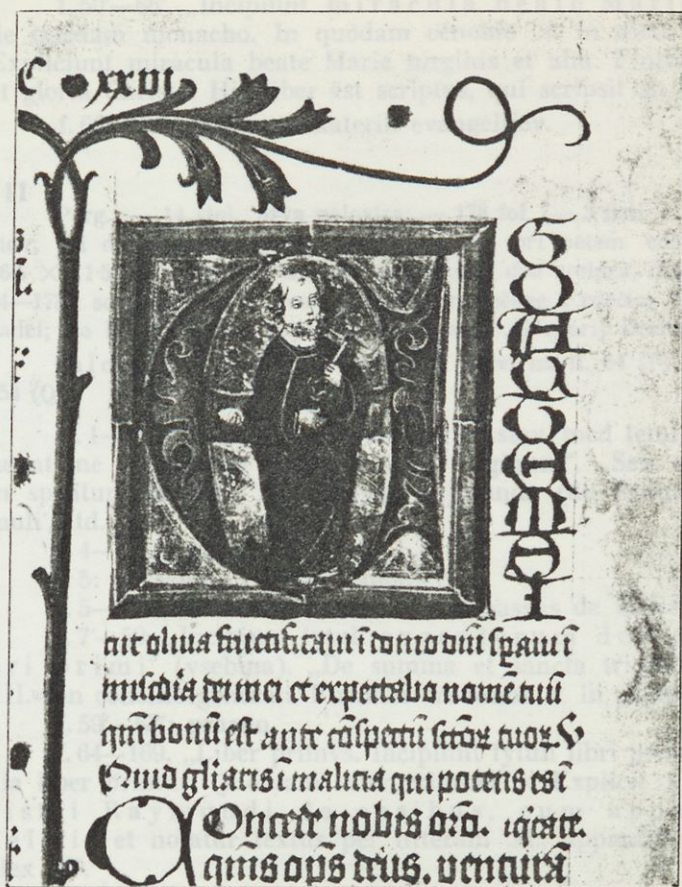 C xxvi
E
G
O
A
U
T
E
M
S
I
cut oliua fructificaui ī domo dnī sꝑaui ī
miscdia dei mei et expectabo nomē tuū
qm̄ bonū est ante cōspectū sctōꝝ tuoꝝ V
Quid gliaris ī malicia qui potens es ī
COncede nobis orō.
qm̄s op̄s deus. venturā